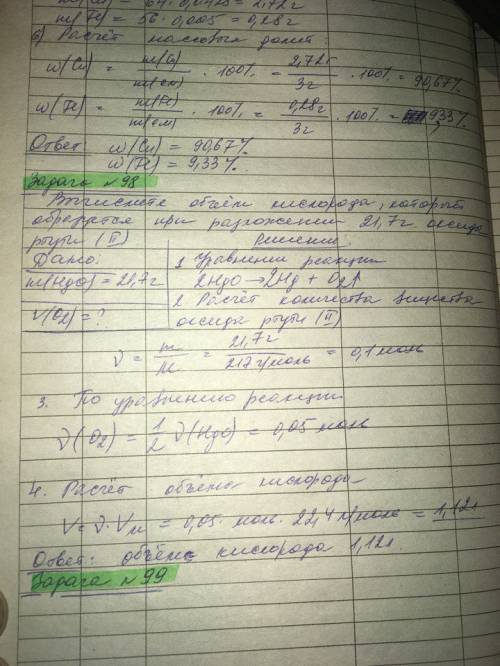 m(Cu) = 64 · 0,0425 = 2,72г
m(Fe) = 56 · 0,005 = 0,28г
6) Расчёт массовых долей:
w(Cu) = m(Cu)/m(см) · 100% = 2,72г/3г · 100% = 90,67%
w(Fe) = m(Fe)/m(см) · 100% = 0,28г/3г · 100% = 9,33%
Ответ: w(Cu) = 90,67%
w(Fe) = 9,33%
Задача №98
Вычислите объём кислорода, который
образуется при разложении 21,7г оксида
ртути (II)
Решение:
Дано:
m(HgO) = 21,7г
V(O2) = ?
1 Уравнение реакции
2HgO → 2Hg + O2↑
2 Расчёт количества вещества
оксида ртути (II)
ν = m/M = 21,7г/217г/моль = 0,1 моль
3. По уравнению реакции
ν(O2) = 1/2 ν(HgO) = 0,05 моль
4. Расчёт объёма кислорода
V = ν · Vм = 0,05 моль · 22,4 л/моль = 1,12л
Ответ: объём кислорода 1,12л.
Задача №99